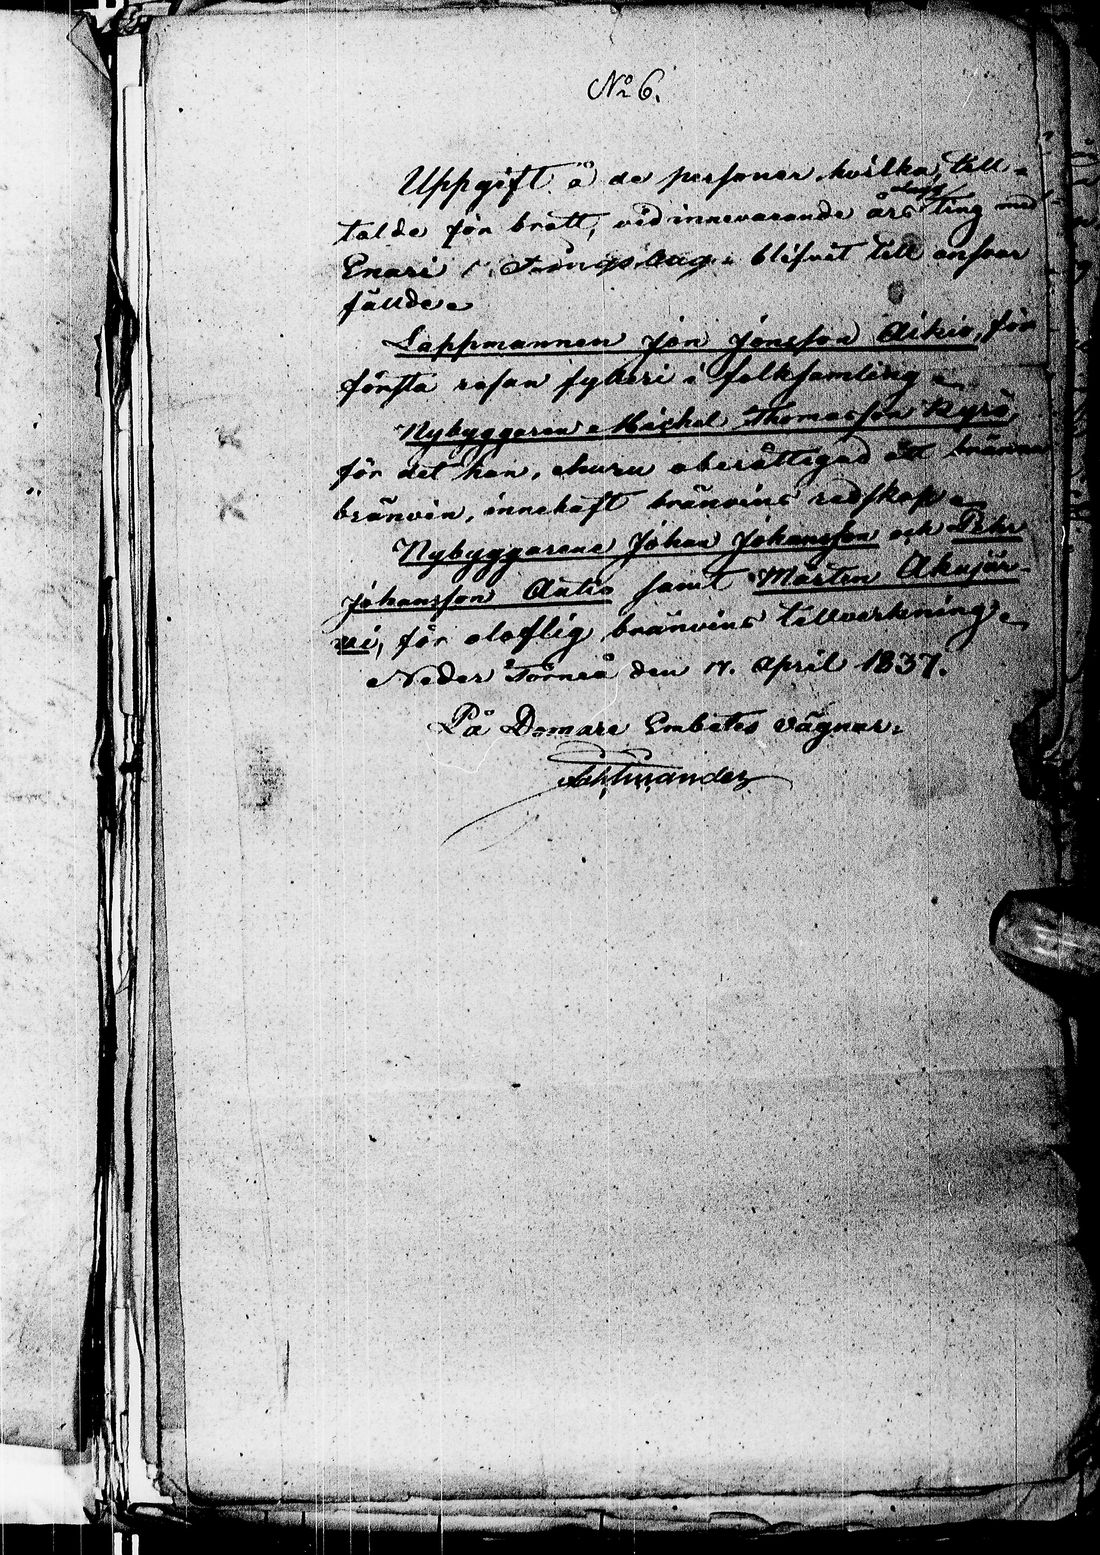 No 6.
Uppgift å de personer hvilka, till-
talde för brott, vid innevarande års Lagtima Ting med
Enari Tingslag blifvit till ansvar
fällde.
Lappmannen Jon Jonsson Aikio, för
första resan fylleri i folksamling.
Nybyggaren Michel Thomasson Kyrö,
för det han, ehuru oberättigad att bränna
bränvin, innehaft bränvins redskap.
Nybyggarene Johan Johansson och Pehr
Johansson Autio samt Mårten Akujär-
vi, för olaflig bränvins tillverkning.
Neder Torneå den 17. April 1837.
På Domare Embetes vägnar.